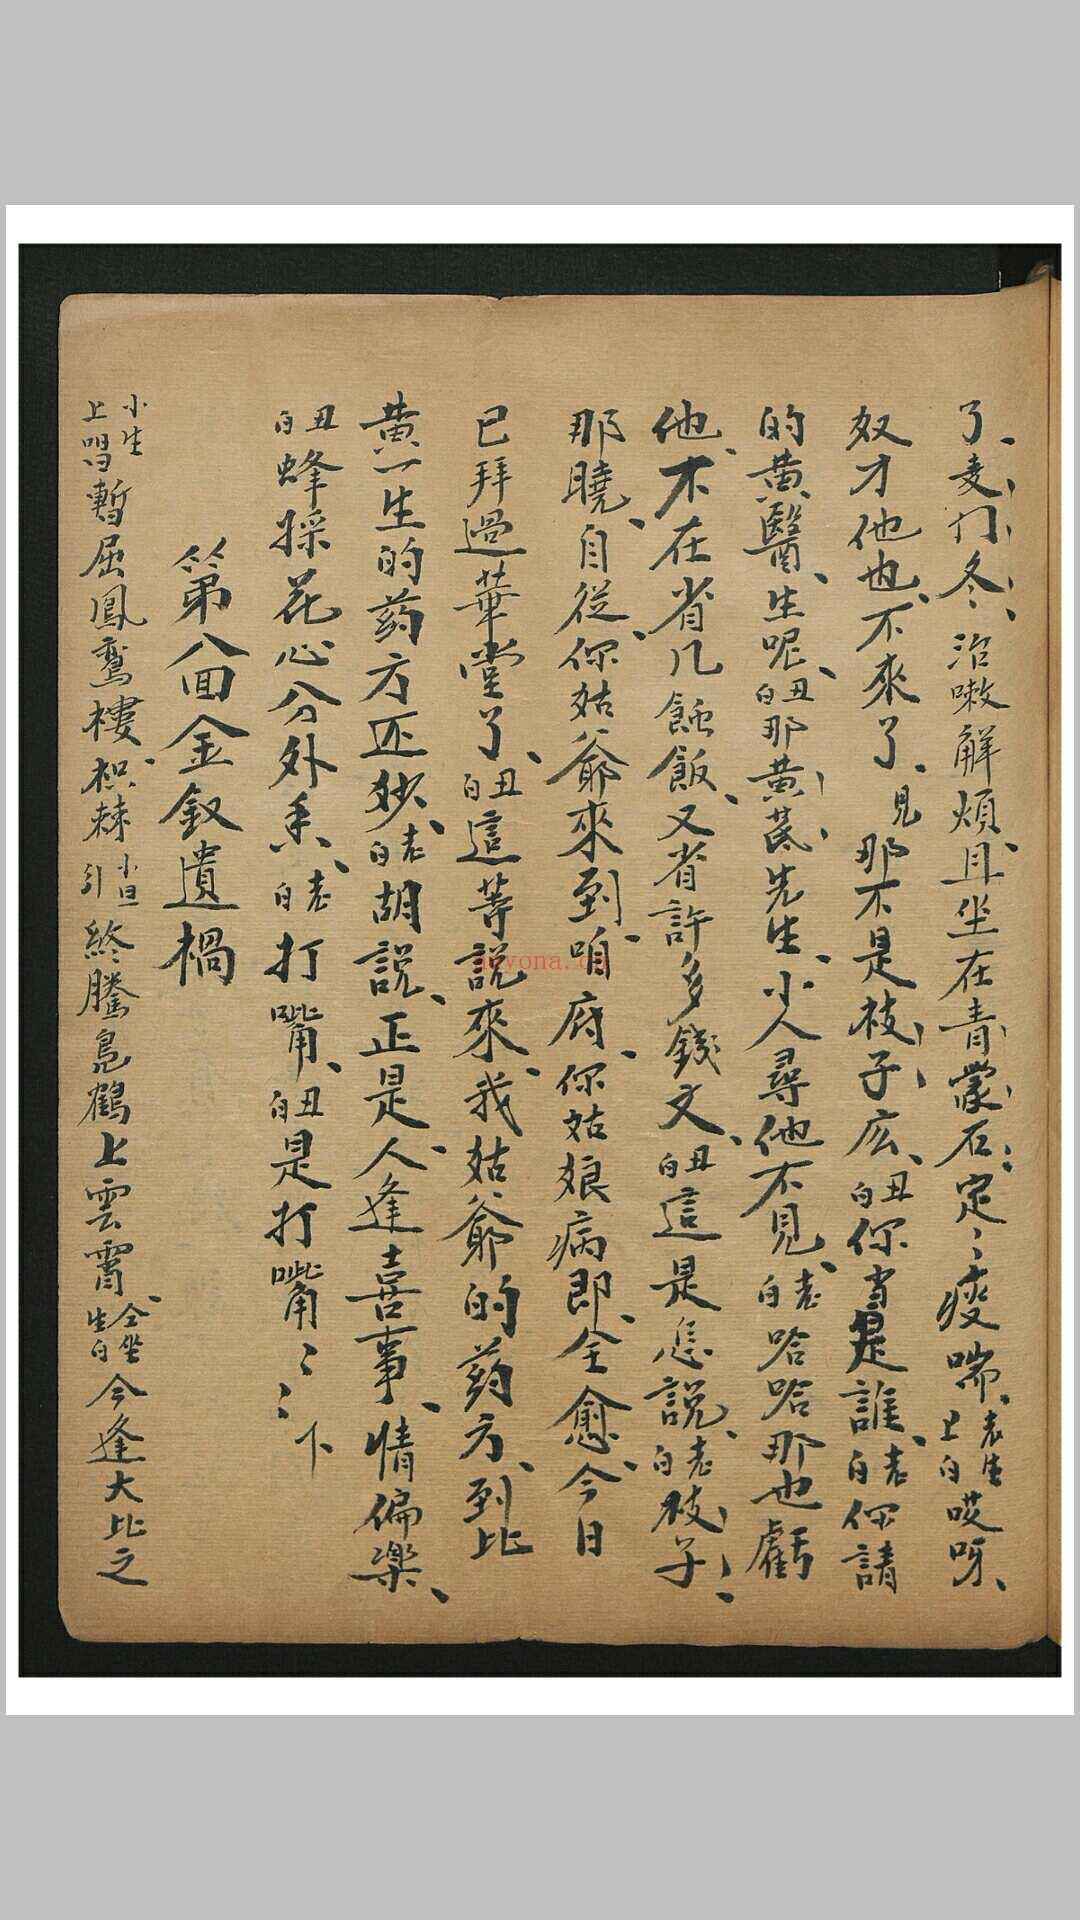 了、麦门冬、治嗽解煩、且坐在青蒙石、定〻痰喘、老生上白哎呀、
奴才他也不來了、見那不是枝子広、丑白你当是誰、老白你請
的黄醫生呢、丑白那黄芪先生、小人尋他不見、老白哈哈那也虧
他、不在省几餂飯、又省許多錢文、丑白這是怎説、老白枝子、
那曉、自從你姑爺來到咱府、你姑娘病即全愈、今日
已拜過華堂了、丑白這等説來、我姑爺的药方、到比
黄一生的药方还妙、老白胡説、正是人逢喜事、情偏樂、
丑白蜂採花心分外香、老白打嘴、丑白是打嘴〻〻下
第八回金釵遺禍
小生上唱暫屈鳳鸞樓枳棘、小旦引終騰鳧鶴上雲霄、仝坐生白今逢大比之